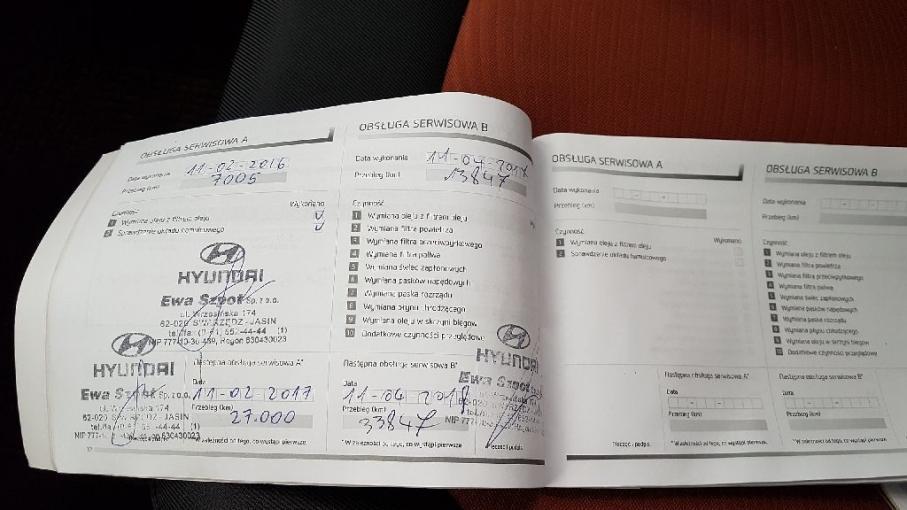 OBSŁUGA SERWISOWA A
Data wykonania 11-02-2016
Przebieg (km) 7005
Czynność Wykonano
1 Wymiana oleju z filtrem oleju
2 Sprawdzenie układu hamulcowego
HYUNDAI
Ewa Szpot Sp. z o.o.
ul. Wrzesińska 174
62-020 SWARZĘDZ-JASIN
HYUNDAI
Ewa Szpot Sp. z o.o.
Następna obsługa serwisowa A*
Data
11-02-2017
Przebieg (km)
27.000
OBSŁUGA SERWISOWA B
Data wykonania 11-04-2017
Przebieg (km) 13847
Czynność
1 Wymiana oleju z filtrem oleju
2 Wymiana filtra powietrza
3 Wymiana filtra przeciwpyłkowego
4 Wymiana filtra paliwa
5 Wymiana świec zapłonowych
6 Wymiana pasków napędowych
7 Wymiana paska rozrządu
8 Wymiana płynu chłodzącego
9 Wymiana oleju w skrzyni biegów
10 Dodatkowe czynności przeglądowe
HYUNDAI
Ewa Szpot
Następna obsługa serwisowa B*
Data
11-04-2018
Przebieg (km)
33847
* W zależności od tego, co wystąpi pierwsze.
OBSŁUGA SERWISOWA A
Data wykonania
Przebieg (km)
Czynność Wykonano
1 Wymiana oleju z filtrem oleju
2 Sprawdzenie układu hamulcowego
Następna obsługa serwisowa A*
Data
Przebieg (km)
* W zależności od tego, co wystąpi pierwsze.
OBSŁUGA SERWISOWA B
Data wykonania
Przebieg (km)
Czynność
1 Wymiana oleju z filtrem oleju
2 Wymiana filtra powietrza
3 Wymiana filtra przeciwpyłkowego
4 Wymiana filtra paliwa
5 Wymiana świec zapłonowych
6 Wymiana pasków napędowych
7 Wymiana paska rozrządu
8 Wymiana płynu chłodzącego
9 Wymiana oleju w skrzyni biegów
10 Dodatkowe czynności przeglądowe
Następna obsługa serwisowa B*
Data
Przebieg (km)
* W zależności od tego, co wystąpi pierwsze.